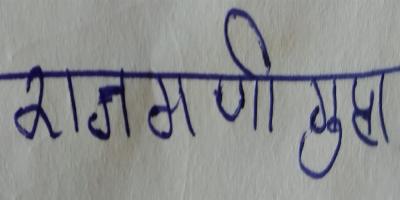 राजमणी गुप्ता